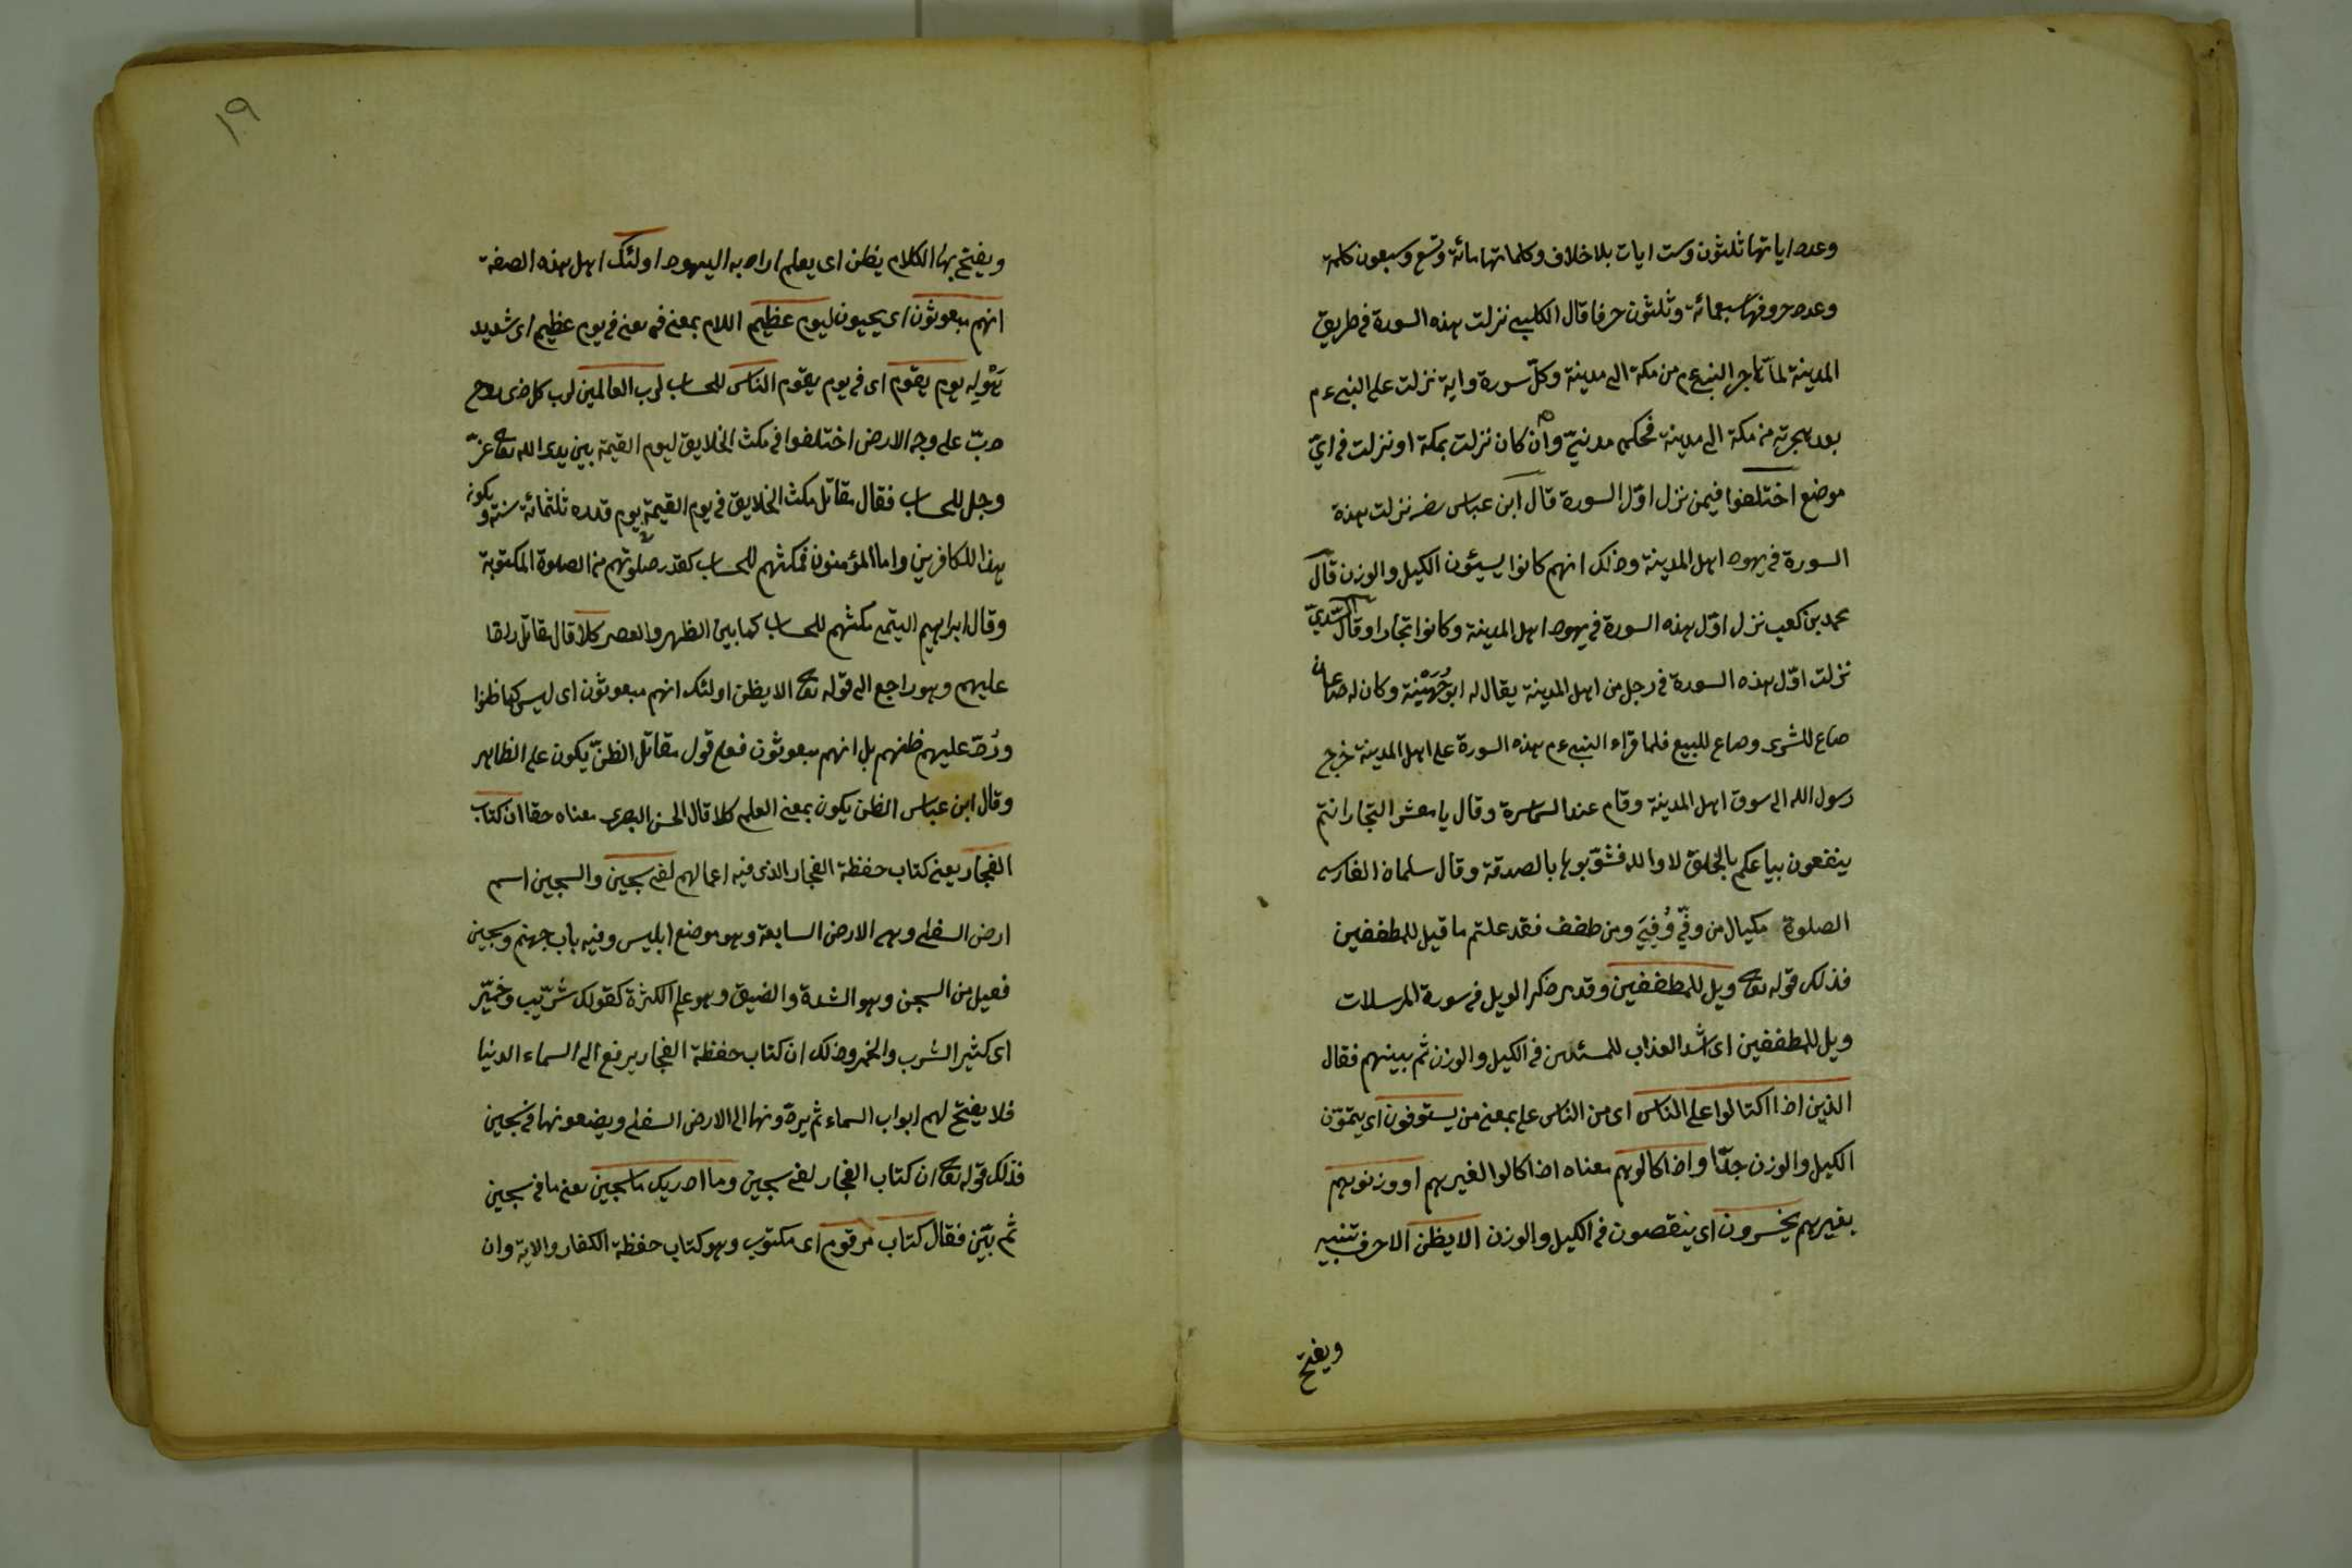 وعدد اياتها ثلثون وست ايات بلا خلاف وكلماتها مائة وتسع وسبعون كلمة
وعدد حروفها سبعمائة وثلثون حرفا قال الكلبي نزلت هذه السورة في طريق
المدينة لما هاجر النبي عم من مكة الى مدينة وكل سورة واية نزلت على النبي ءم
بعد هجرته من مكة الى مدينة فحكمه مدنيّ وان كان نزلت بمكة او نزلت في ايّ
موضع اختلفوا فيمن نزل اوّل السورة قال ابن عباس رضـ نزلت هذه
السورة في يهود اهل المدينة وذلك انهم كانوا يسيئون الكيل والوزن قال
محمد بن كعب نزل اوّل هذه السورة في يهود اهل المدينة وكانوا تجارا وقال السّديّ
نزلت اوّل هذه السورة في رجل من اهل المدينة يقال له ابو جُهَيْنة وكان له صاعان
صاع للشرى وصاع للبيع فلما قراء النبي ءم هذه السورة على اهل المدينة خرج
رسول الله الى سوق اهل المدينة وقام عند السماسرة وقال يا معشر التجار انتم
ينفعون بياعكم بالخلق لا والله فشوّبوها بالصدقة وقال سلمان الفارسى
الصلوة مكيال من وفّي وُفِيَ ومن طفف فقد علمتم ما قيل للمطففين
فذلك قوله تعا ويل للمطففين وقد مر ذكر الويل في سورة المرسلات
ويل للمطففين اى اشد العذاب للمسئين في الكيل والوزن ثم بينهم فقال
الذين اذا اكتالوا على الناس اى من الناس على بمعنى من يستوفون اى يتمّون
الكيل والوزن جدّا واذا كالوهم معناه اذا كالوا لغيرهم او وزنوهم
بغيرهم يخسرون اى ينقصون في الكيل والوزن الا يظن الا حرف تنبيه
ويفتح
١٩
ويفتح بها الكلام يظن اى يعلم اراد به اليهود اولئك اهل هذه الصفة
انهم مبعوثون اى يحيون ليوم عظيم اللام بمعنى في يعنى في يوم عظيم اى شديد
هَوْله يوم يقوم اى في يوم يقوم الناس للحساب لرب العالمين لرب كل ذى روح
دبّ على وجه الارض اختلفوا في مكث الخلايق ليوم القيمة بين يدى الله تعا عزّ
وجل للحساب فقال مقاتل مكث الخلايق في يوم القيمة بيوم قدره ثلثمائة سنة ويكون
هذا للكافرين واما المؤمنون فمكثهم للحساب كقدر صلوتهم من الصلوة المكتوبة
وقال ابراهيم التيمى مكثهم للحساب كما بين الظهر والعصر كلا قال مقاتل
عليهم وهو راجع الى قوله تعا الا يظن اولئك انهم مبعوثون اى ليس كما ظنوا
ورُدّ عليهم ظنهم بل انهم مبعوثون فعلى قول مقاتل الظنّ يكون على الظاهر
وقال ابن عباس الظن يكون بمعنى العلم كلا قال الحسن البصرى معناه حقا ان كتاب
الفجار يعنى كتاب حفظة الفجار الذى فيه اعمالهم لفى سجين والسجين اسم
ارض السفلى وهى الارض السابعة وهو موضع ابليس وفيه باب جهنم وسجين
فعيل من السجن وهو الشدة والضيق وهو على الكثرة كقولك شرّيب وخمّير
اى كثير الشرب والخمر وذلك ان كتاب حفظة الفجار يرفع الى السماء الدنيا
فلا يفتح لهم ابواب السماء ثم يردّونها الى الارض السفلى ويضعونها في سجين
فذلك قوله تعا ان كتاب الفجار لفى سجين وما ادريك ما سجين يعنى ما في سجين
ثم بيّن فقال كتاب مرقوم اى مكتوب وهو كتاب حفظة الكفار والاية وان